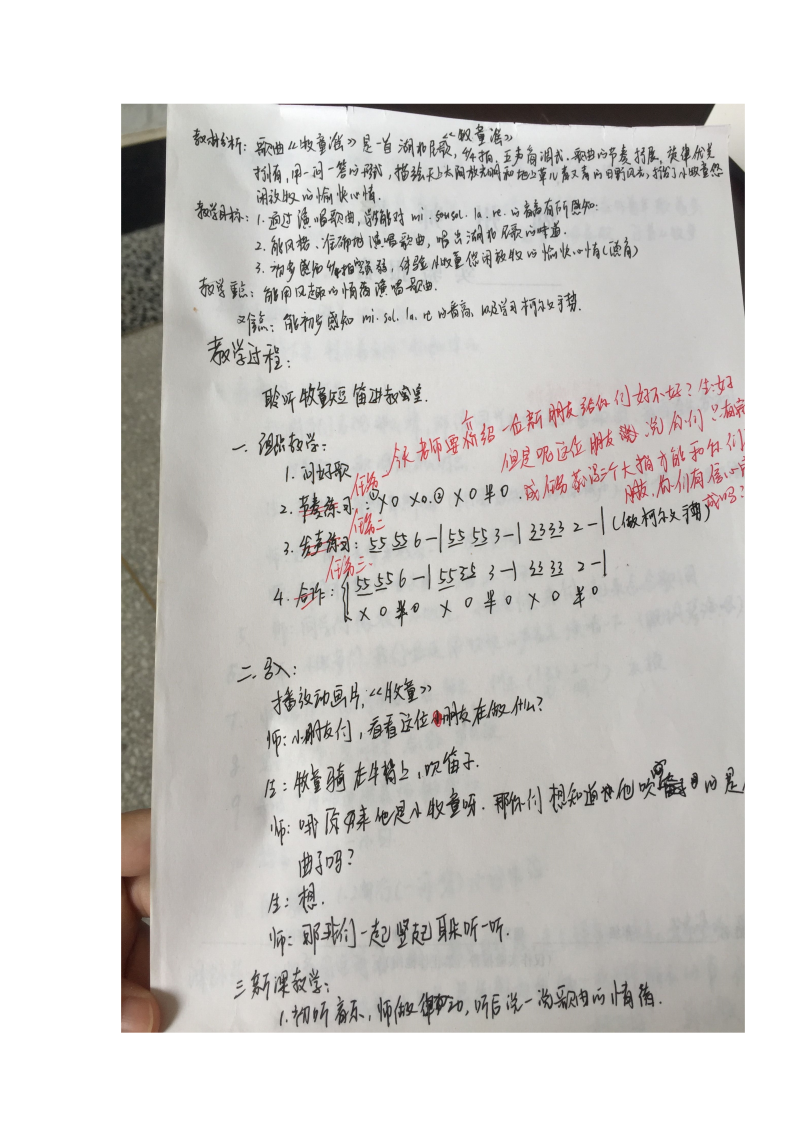 《牧童谣》
教材分析：歌曲《牧童谣》是一首湖北民歌，2/4拍，五声角调式。歌曲的节奏舒展，旋律优美
抒情，用一问一答的形式，描绘天上太阳放光明和地上草儿青又青的田野风光，抒发了小牧童悠
闲放牧的愉快心情。
教学目标：1.通过演唱歌曲，能对mi.sol.la.re.的音高有所感知.
2.能风趣、准确地演唱歌曲，唱出湖北民歌的味道.
3.初步感知2/4拍强弱，体验小牧童悠闲放牧的愉快心情
教学重点：能用风趣的情绪演唱歌曲.
难点：能初步感知mi.sol.la.re的音高，以及学习柯尔文手势.
教学过程：
聆听牧童短笛进教室.
一.组织教学：
今天老师要介绍一位新朋友给你们好不好？生：好
1.问好歌
但是呢这位朋友说你们只有完
任务一
2.节奏练习：X 0 X 0 X 0 半 0
成任务获得三个大拇指才能和你们
朋友，你们有信心完
成吗？
任务二
3.发声练习：55 55 6-|55 55 3-|33 33 2-|(做柯尔文手势)
任务三
4.合作：55 55 6-|55 55 3-|33 33 2-|
X 0 半 0 X 0 半 0 X 0 半 0
二.导入：
播放动画片，《牧童》
师：小朋友们，看看这位小朋友在做什么？
生：牧童骑在牛背上，吹笛子.
师：哦原来他是小牧童呀.那你们想知道他吹的是
曲子吗？
生：想.
师：那我们一起竖起耳朵听一听.
三.新课教学：
1.初听音乐，师做律动，听后说一说歌曲的情绪.